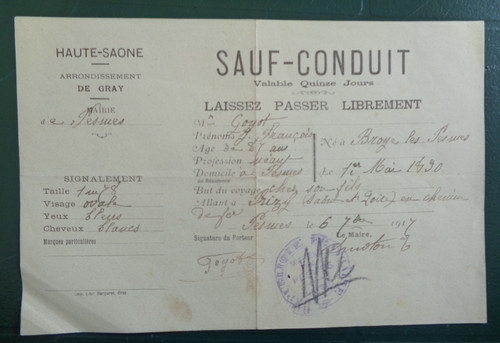 HAUTE-SAONE
ARRONDISSEMENT
DE GRAY
MAIRIE
de Pesmes
SIGNALEMENT
Taille 1m78
Visage ovale
Yeux bleus
Cheveux blancs
Marques particulières
SAUF-CONDUIT
Valable Quinze Jours
LAISSEZ PASSER LIBREMENT
M Goyot
Prénoms François Né à Broye les Pesmes
Age de 87 ans
Profession néant
Domicile à Pesmes le 1er Mai 1830
ou Résidence
But du voyage chez son fils
Allant à Brizy (Saône et Loire) en chemin
de fer Pesmes le 6 7bre 1917
Signature du Porteur Le Maire,
Goyot